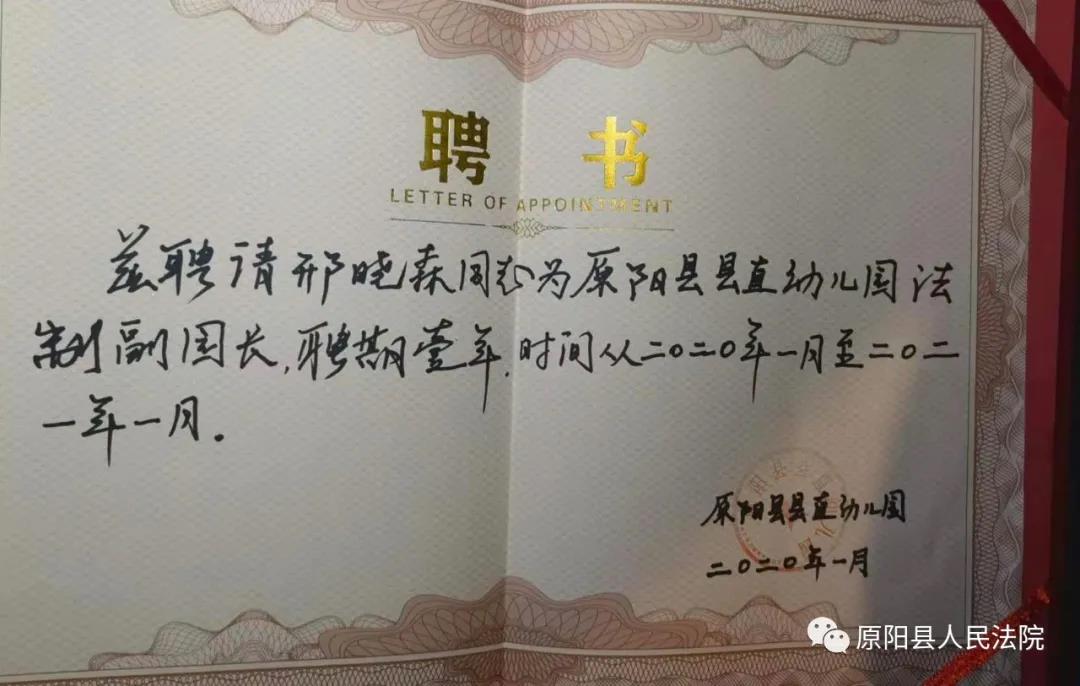 聘 书
LETTER OF APPOINTMENT
兹聘请邢晓森同志为原阳县县直幼儿园法
制副园长,聘期壹年,时间从二〇二〇年一月至二〇二
一年一月.
原阳县县直幼儿园
二〇二〇年一月
原阳县人民法院